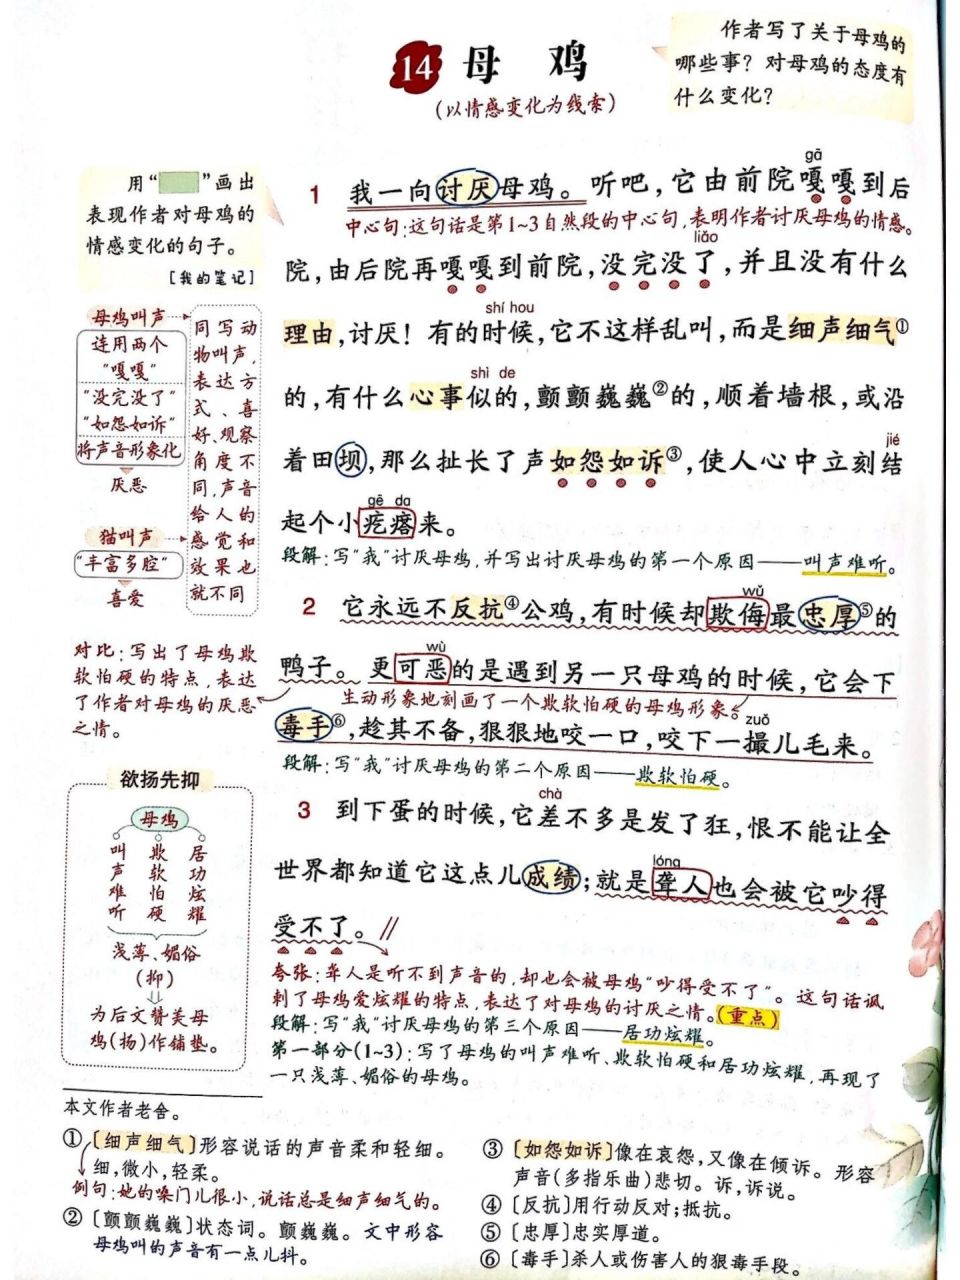 14 母 鸡
(以情感变化为线索)
作者写了关于母鸡的
哪些事？对母鸡的态度有
什么变化？
用“ ”画出
表现作者对母鸡的
情感变化的句子。
[我的笔记]
母鸡叫声
连用两个
“嘎嘎”
“没完没了”
“如怨如诉”
将声音形象化
厌恶
猫叫声
“丰富多腔”
喜爱
同写动
物叫声，
表达方
式、喜
好、观察
角度不
同，声音
给人的
感觉和
效果也
就不同
gā
1 我一向讨厌母鸡。听吧，它由前院嘎嘎到后
中心句：这句话是第1~3自然段的中心句，表明作者讨厌母鸡的情感。
liǎo
院，由后院再嘎嘎到前院，没完没了，并且没有什么
shí hou
理由，讨厌！有的时候，它不这样乱叫，而是细声细气①
shì de
的，有什么心事似的，颤颤巍巍②的，顺着墙根，或沿
jié
着田坝，那么扯长了声如怨如诉③，使人心中立刻结
gē da
起个小疙瘩来。
段解：写“我”讨厌母鸡，并写出讨厌母鸡的第一个原因——叫声难听。
wǔ
2 它永远不反抗④公鸡，有时候却欺侮最忠厚⑤的
wù
鸭子。更可恶的是遇到另一只母鸡的时候，它会下
生动形象地刻画了一个欺软怕硬的母鸡形象。
zuǒ
毒手⑥，趁其不备，狠狠地咬一口，咬下一撮儿毛来。
段解：写“我”讨厌母鸡的第二个原因——欺软怕硬。
对比：写出了母鸡欺
软怕硬的特点，表达
了作者对母鸡的厌恶
之情。
chà
3 到下蛋的时候，它差不多是发了狂，恨不能让全
lóng
世界都知道它这点儿成绩；就是聋人也会被它吵得
受不了。//
夸张：聋人是听不到声音的，却也会被母鸡“吵得受不了”。这句话讽
刺了母鸡爱炫耀的特点，表达了对母鸡的讨厌之情。(重点)
段解：写“我”讨厌母鸡的第三个原因——居功炫耀。
第一部分(1~3)：写了母鸡的叫声难听、欺软怕硬和居功炫耀，再现了
一只浅薄、媚俗的母鸡。
欲扬先抑
母鸡
叫声难听
欺软怕硬
居功炫耀
浅薄、媚俗
(抑)
为后文赞美母
鸡(扬)作铺垫。
本文作者老舍。
①［细声细气］形容说话的声音柔和轻细。
细，微小，轻柔。
例句：她的嗓门儿很小，说话总是细声细气的。
②［颤颤巍巍］状态词。颤巍巍。文中形容
母鸡叫的声音有一点儿抖。
③［如怨如诉］像在哀怨，又像在倾诉。形容
声音(多指乐曲)悲切。诉，诉说。
④［反抗］用行动反对；抵抗。
⑤［忠厚］忠实厚道。
⑥［毒手］杀人或伤害人的狠毒手段。